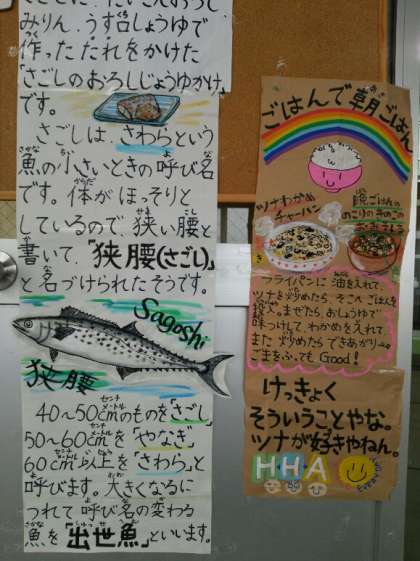 みりん、うす口しょうゆで
作ったたれをかけた
「さごしのおろしじょうゆかけ」
です。
さごしは、さわらという
魚の小さいときの呼び名
です。体がほっそりと
しているので狭い腰と
書いて、「狭腰(さごし)」
と名づけられたそうです。
Sagoshi
狭腰
40〜50cmのものを「さごし」
50〜60cmを「やなぎ」
60cm以上を「さわら」と
呼びます。大きくなるに
つれて呼び名の変わる
魚を「出世魚」といいます。
ごはんで朝ごはん
ツナわかめ
チャーハン
晩ごはんの
のこりの
フライパンに油を入れて、
ツナを炒めたら、そこへごはんを
投入。まぜたら、おしょうゆで
味つけして、わかめを入れて
また炒めたらできあがり
ごまをふってもGood!
けっきょく
そういうことやな。
ツナが好きやねん。
HHA